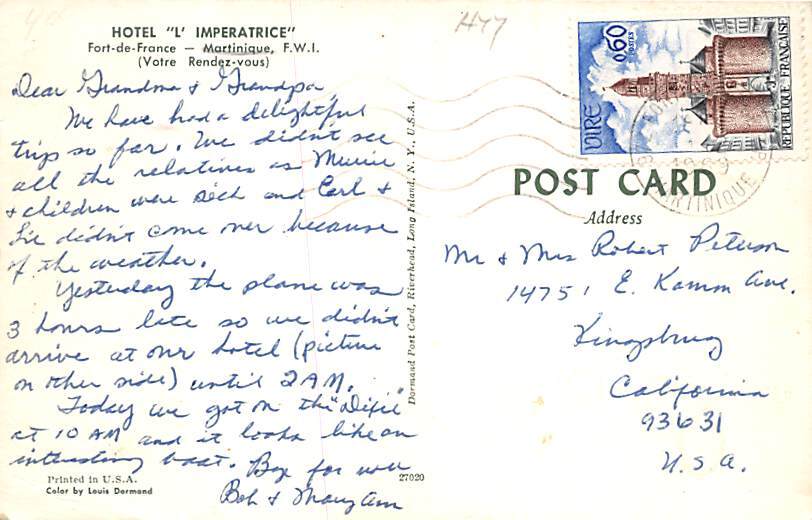 HOTEL "L' IMPERATRICE"
Fort-de-France — Martinique, F.W.I.
(Votre Rendez-vous)
Dear Grandma & Grandpa,
We have had a delightful
trip so far. We didn't see
all the relatives as
& children were sick and Carl &
didn't come over because
of the weather.
Yesterday the plane was
3 hours late so we didn't
arrive at our hotel (picture
on other side) until 2 AM.
Today we got on the "Dixie"
at 10 AM and it looks like an
interesting boat. for now
Bob & Mary Ann
Printed in U.S.A.
Color by Louis Dormand
27020
Dormand Post Card, Riverhead, Long Island, N. Y., U.S.A.
H47
0,60
POSTES
REPUBLIQUE FRANÇAISE
MARTINIQUE
POST CARD
Address
Mr & Mrs Robert Peterson
14751 E. Kamm Ave.
Kingsburg
California
93631
U.S.A.